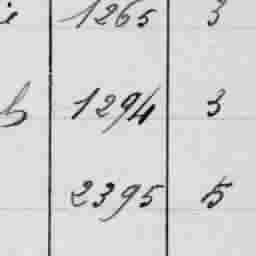 1265 3
1294 3
2395 5